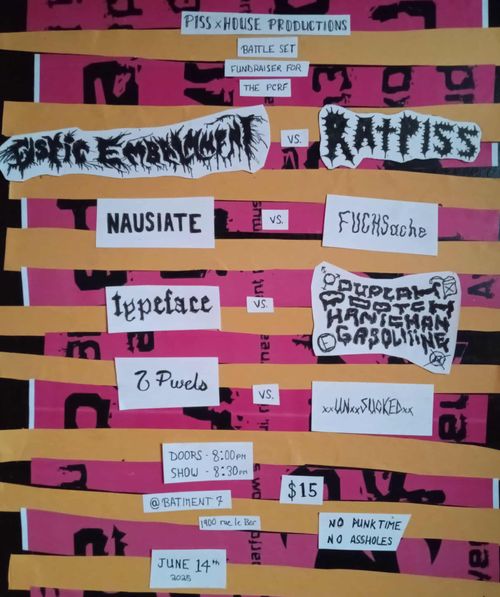 PISS x HOUSE PRODUCTIONS
BATTLE SET
FUNDRAISER FOR
THE PCRF
EMBALMMENT VS. RATPISS
NAUSIATE VS. FUCHSache
typeface VS. DUPLAN
POOTCH
HANIGHAN
GASOLIIINE
Pwels VS. xxUNxxSUCKEDxx
DOORS - 8:00PM
SHOW - 8:30PM
$15
@ BATIMENT 7
1900 rue le Ber
NO PUNK TIME
NO ASSHOLES
JUNE 14th
2025